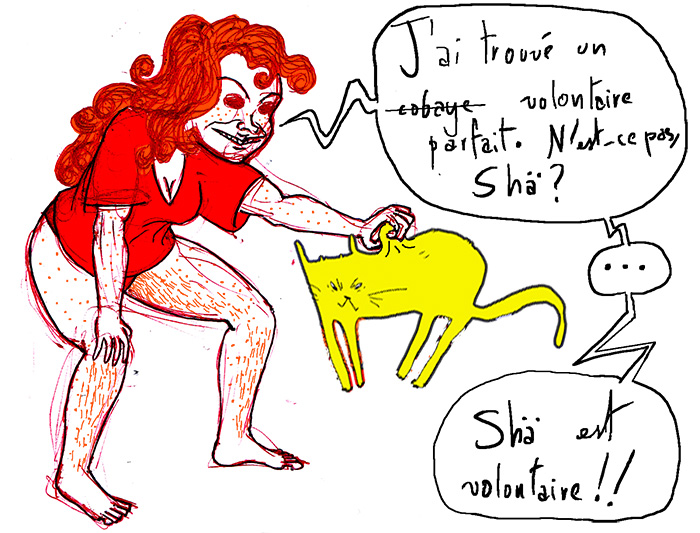 J'ai trouvé un
cobaye volontaire
parfait. N'est-ce pas,
Shä?
...
Shä est
volontaire!!